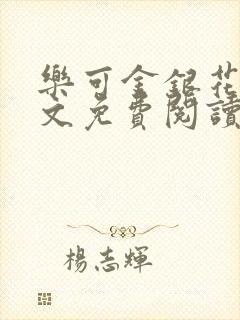 樂可金銀花
文免費閱讀
楊志輝